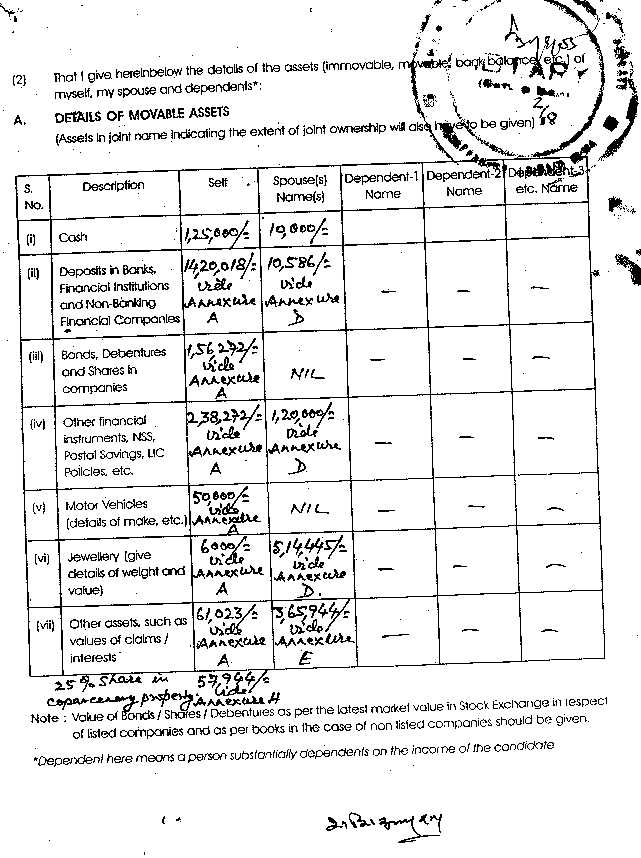 (2) That I give hereinbelow the details of the assets (immovable, movable, bank balance, etc.) of
myself, my spouse and dependents*:
A. DETAILS OF MOVABLE ASSETS
(Assets in joint name indicating the extent of joint ownership will also have to be given)
S. No. Description Self Spouse(s) Name(s) Dependent-1 Name Dependent-2 Name Dependent-3 etc. Name
(i) Cash 1,25,000/= 10,000/=
(ii) Deposits in Banks, 14,20,018/= 10,586/=
Financial Institutions vide vide
and Non-Banking Annexure Annexure — — —
Financial Companies A D
(iii) Bonds, Debentures 1,56,272/= — — —
and Shares in vide NIL
companies Annexure
A
(iv) Other financial 2,38,272/= 1,20,000/=
instruments, NSS, vide vide — — —
Postal Savings, LIC Annexure Annexure
Policies, etc. A D
(v) Motor Vehicles 50,000/= NIL — — —
(details of make, etc.) vide Annexure
A
(vi) Jewellery (give 6000/= 5,14,445/=
details of weight and vide Annexure vide Annexure — — —
value) A D.
(vii) Other assets, such as 61,023/= 3,65,944/=
values of claims / vide Annexure vide Annexure — — —
interests A E
25% share in 57,944/=
coparcenary property. vide Annexure H
Note : Value of Bonds / Shares / Debentures as per the latest market value in Stock Exchange in respect
of listed companies and as per books in the case of non listed companies should be given.
*Dependent here means a person substantially dependents on the income of the candidate